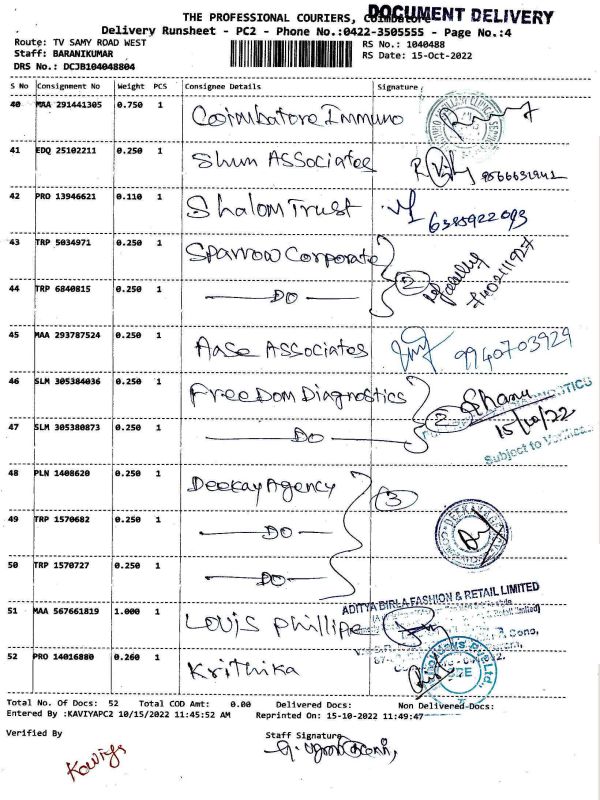 DOCUMENT DELIVERY
THE PROFESSIONAL COURIERS, Coimbatore
Delivery Runsheet - PC2 - Phone No.:0422-3505555 - Page No.:4
Route: TV SAMY ROAD WEST
RS No.: 1040488
Staff: BARANIKUMAR
RS Date: 15-Oct-2022
DRS No.: DCJB104048804
S No Consignment No Weight PCS Consignee Details Signature
40 MAA 291441305 0.750 1 Coimbatore Immuno
41 EDQ 25102211 0.250 1 Shum Associates 9566631941
42 PRO 13946621 0.110 1 Shalom Trust 6385922093
43 TRP 5034971 0.250 1 Sparrow Corporate 2
44 TRP 6840815 0.250 1 DO
45 MAA 293787524 0.250 1 Aase Associates 9940703929
46 SLM 305384036 0.250 1 FreeDom Diagnostics 2
15/10/22
47 SLM 305380873 0.250 1 DO
Subject to
48 PLN 1408620 0.250 1 Deekay Agency 3
49 TRP 1570682 0.250 1 DO
DEEKAY
50 TRP 1570727 0.250 1 DO
ADITYA BIRLA FASHION & RETAIL LIMITED
51 MAA 567661819 1.000 1 Louis Phillipe
52 PRO 14016880 0.260 1 Krithika
Total No. Of Docs: 52 Total COD Amt: 0.00 Delivered Docs: Non Delivered Docs:
Entered By :KAVIYAPC2 10/15/2022 11:45:52 AM Reprinted On: 15-10-2022 11:49:47
Verified By Staff Signature
Kaviya